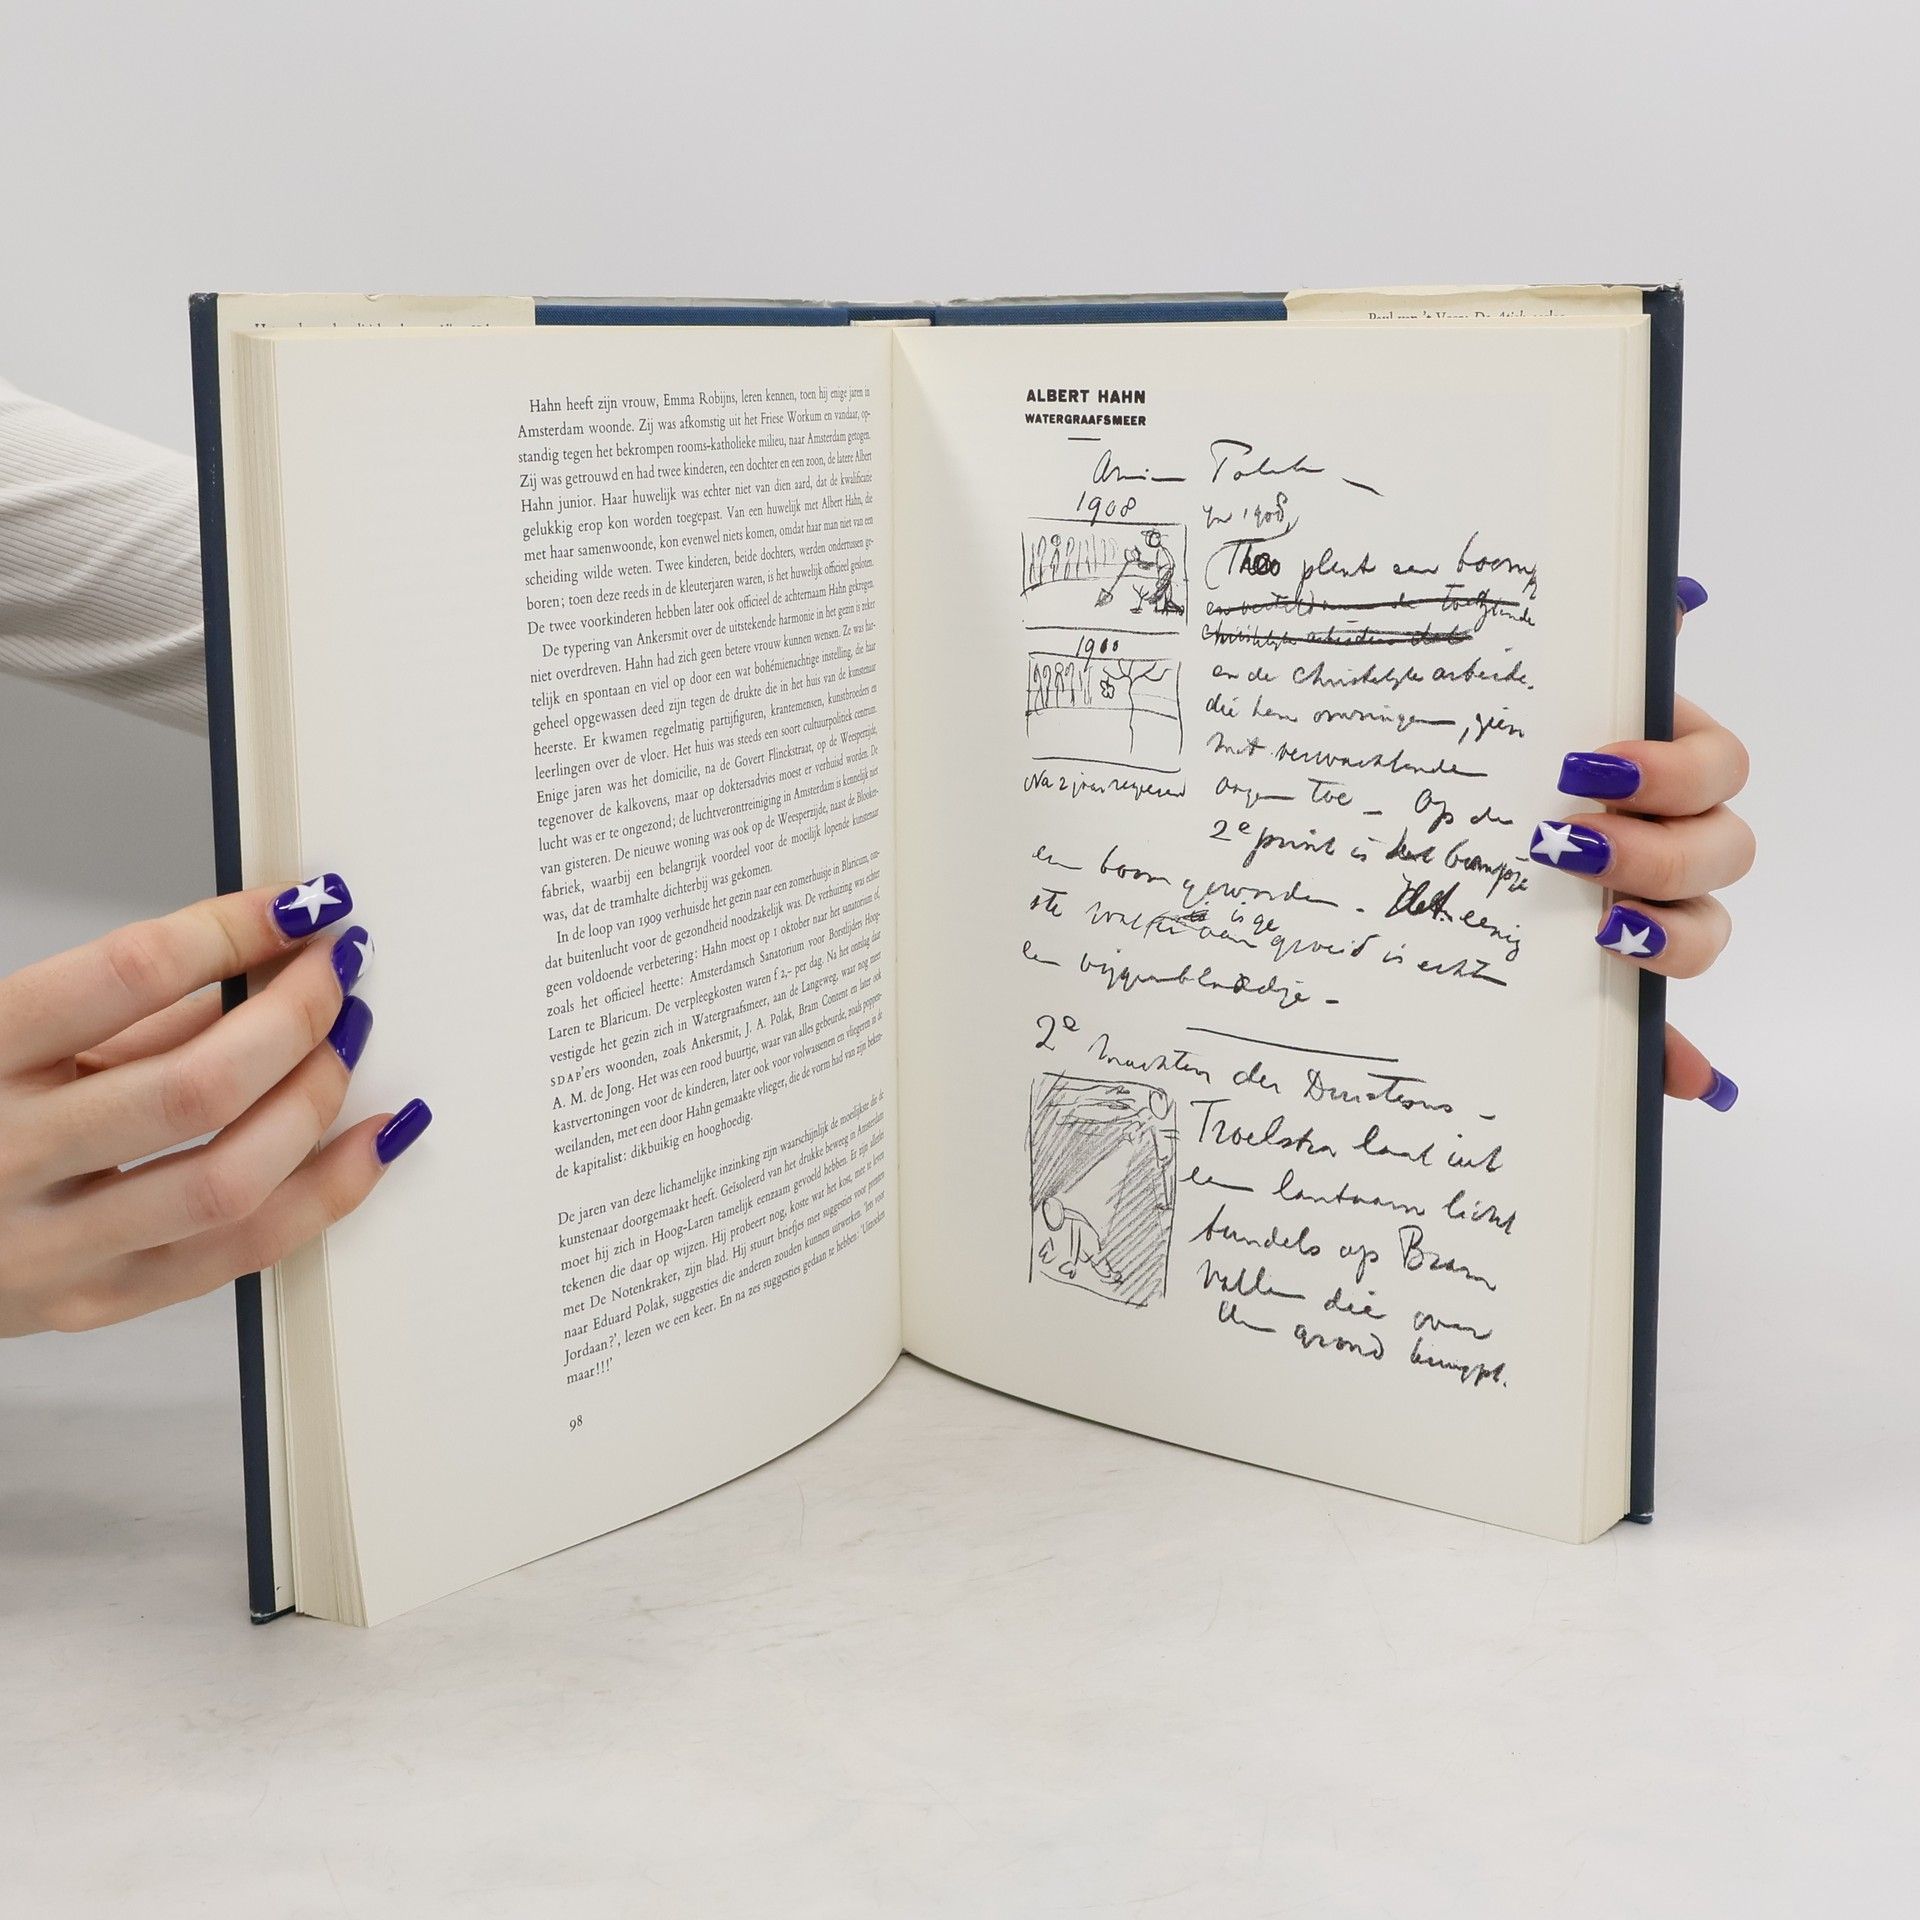 Hahn heeft zijn vrouw, Emma Robijns, leren kennen, toen hij enige jaren in
Amsterdam woonde. Zij was afkomstig uit het Friese Workum en vandaar, op-
standig tegen het bekrompen rooms-katholieke milieu, naar Amsterdam getogen.
Zij was getrouwd en had twee kinderen, een dochter en een zoon, de latere Albert
Hahn junior. Haar huwelijk was echter niet van dien aard, dat de kwalificatie
gelukkig erop kon worden toegepast. Van een huwelijk met Albert Hahn, die
met haar samenwoonde, kon evenwel niets komen, omdat haar man niet van een
scheiding wilde weten. Twee kinderen, beide dochters, werden ondertussen ge-
boren; toen deze reeds in de kleuterjaren waren, is het huwelijk officieel gesloten.
De twee voorkinderen hebben later ook officieel de achternaam Hahn gekregen.
De typering van Ankersmit over de uitstekende harmonie in het gezin is zeker
niet overdreven. Hahn had zich geen betere vrouw kunnen wensen. Ze was har-
telijk en spontaan en viel op door een wat bohémienachtige instelling, die haar
geheel opgewassen deed zijn tegen de drukte die in het huis van de kunstenaar
heerste. Er kwamen regelmatig partijfiguren, krantemensen, kunstbroeders en
leerlingen over de vloer. Het huis was steeds een soort cultuurpolitiek centrum.
Enige jaren was het domicilie, na de Govert Flinckstraat, op de Weesperzijde,
tegenover de kalkovens, maar op doktersadvies moest er verhuisd worden. De
lucht was er te ongezond; de luchtverontreiniging in Amsterdam is kennelijk niet
van gisteren. De nieuwe woning was ook op de Weesperzijde, naast de Blooker-
fabriek, waarbij een belangrijk voordeel voor de moeilijk lopende kunstenaar
was, dat de tramhalte dichterbij was gekomen.
In de loop van 1909 verhuisde het gezin naar een zomerhuisje in Blaricum, om-
dat buitenlucht voor de gezondheid noodzakelijk was. De verhuizing was echter
geen voldoende verbetering: Hahn moest op 1 oktober naar het sanatorium of,
zoals het officieel heette: Amsterdamsch Sanatorium voor Borstlijders Hoog-
Laren te Blaricum. De verpleegkosten waren f 2,- per dag. Na het ontslag daar
vestigde het gezin zich in Watergraafsmeer, aan de Langeweg, waar nog meer
SDAP'ers woonden, zoals Ankersmit, J. A. Polak, Bram Content en later ook
A. M. de Jong. Het was een rood buurtje, waar van alles gebeurde, zoals poppen-
kastvertoningen voor de kinderen, later ook voor volwassenen en vliegeren in de
weilanden, met een door Hahn gemaakte vlieger, die de vorm had van zijn beken-
de kapitalist: dikbuikig en hooghoedig.
De jaren van deze lichamelijke inzinking zijn waarschijnlijk de moeilijkste die de
kunstenaar doorgemaakt heeft. Geïsoleerd van het drukke beweeg in Amsterdam
moet hij zich in Hoog-Laren tamelijk eenzaam gevoeld hebben. Er zijn allerlei
tekenen die daar op wijzen. Hij probeert nog, koste wat het kost, mee te leven
met De Notenkraker, zijn blad. Hij stuurt briefjes met suggesties voor prenten
naar Eduard Polak, suggesties die anderen zouden kunnen uitwerken. 'Iets voor
Jordaan?', lezen we een keer. En na zes suggesties gedaan te hebben: 'Uitzoeken
maar!!!'
98
ALBERT HAHN
WATERGRAAFSMEER
1908
Theo plant een boompje
en de christelijke arbeide.
die hem omringen, zien
met verwachtende
oogen toe – Op de
2e prent is het boompje
een boom geworden – Het eenig
ste wat er aan is ge
groeid is echt
een vijgenblaadje –
2e
Troelstra laat uit
een lantaarn licht
bundels op Bram
vallen die over
den grond kruipt.